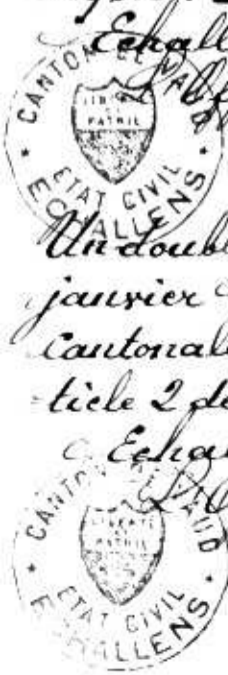 Echall
CANTON DE VAUD
LIBERTÉ
ET
PATRIE
ETAT CIVIL
ECHALLENS
Un doubl
janvier
Cantonale
ticle 2 de
Echal
CANTON DE VAUD
LIBERTÉ
ET
PATRIE
ETAT CIVIL
ECHALLENS